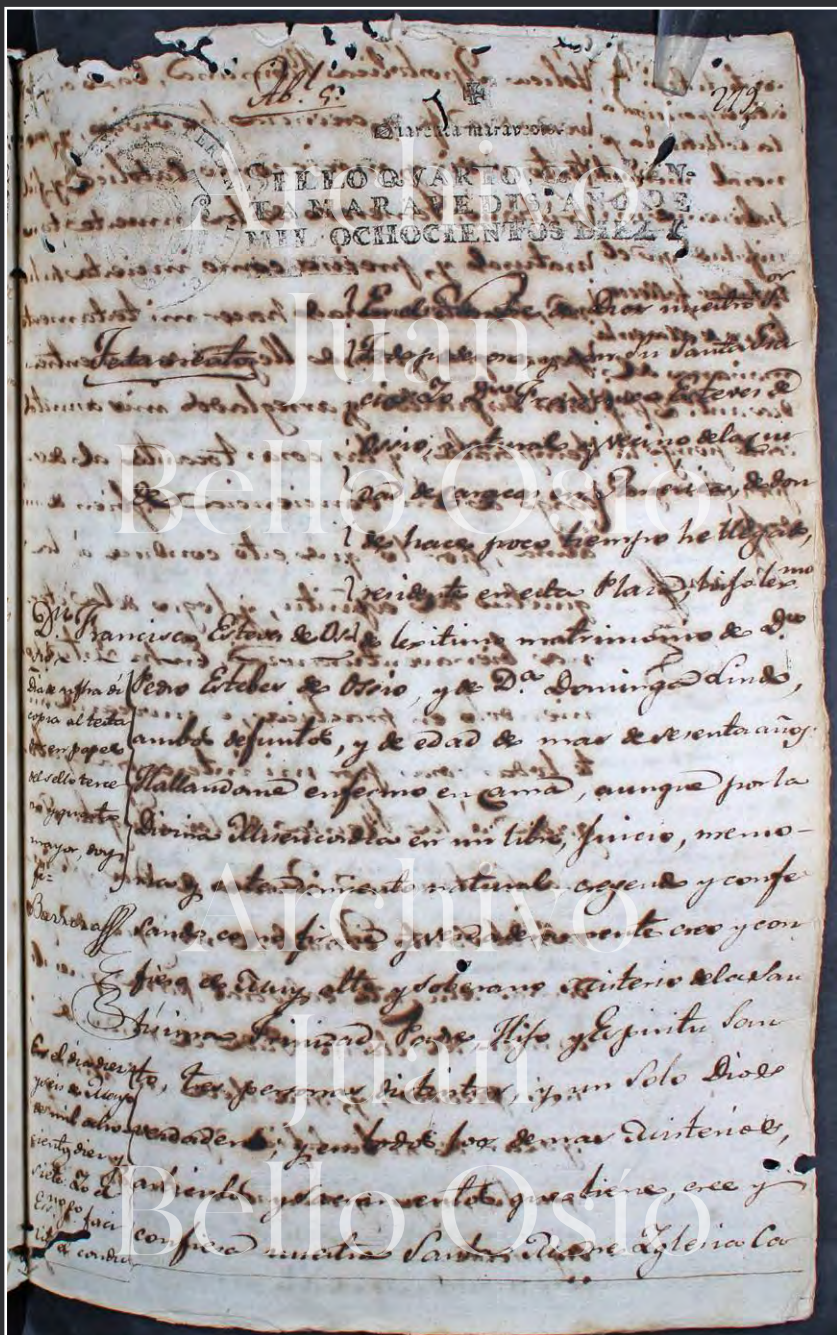 Ab.l 5.
219.
Quarenta maravedis.
SELLO QVARTO, QVAREN-
TA MARAVEDIS, AÑO DE
MIL OCHOCIENTOS DIEZ Y
Testamento
de
Dn Francisco Esteves de Osio
En el Nombre de Dios nuestro S.or
Todo poderoso y con su Santa Gra
cia: Yo Dn Francisco Esteves de
Ossio, natural y vecino de la ciu
dad de Caracas en America, de don
de hace poco tiempo he llegado,
residente en esta Plaza, hijo lex.mo
de lexitimo matrimonio de Dn
Pedro Esteber de Ossio, y de D.a Dominga Lindo,
ambos defuntos, y de edad de mas de sesenta años:
Hallandome enfermo en cama, aunque por la
Divina Misericordia en mi libre juicio, memo-
ria y entendimiento natural: creyendo y confe
sando, como firme y verdaderamente creo y con
fieso el muy alto y soberano misterio de la San
tisima Trinidad Padre, Hijo y Espiritu San
to, tres personas distintas, y un solo Dios
verdadero, y en todos los demas misterios,
y sacramentos que tiene, cree y
confiesa nuestra Santa Madre Iglesia Ca
Dia de su fha di
copia al testa
en papel
del sello terce
ro y quarto
mayor, doy
fe=
Barrera
En el dia diez
y seis de Mayo
de mil ocho
ciento diez y
siete Yo el
Archivo
Juan
Bello Osío
Archivo
Juan
Bello Osío